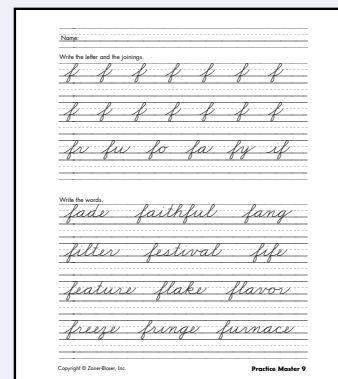 Name:
Write the letter and the joinings.
f f f f f f f
f f f f f f f
fr fu fo fa fy if
Write the words.
fade faithful fang
filter festival fife
feature flake flavor
freeze fringe furnace
Copyright © Zaner-Bloser, Inc. Practice Master 9